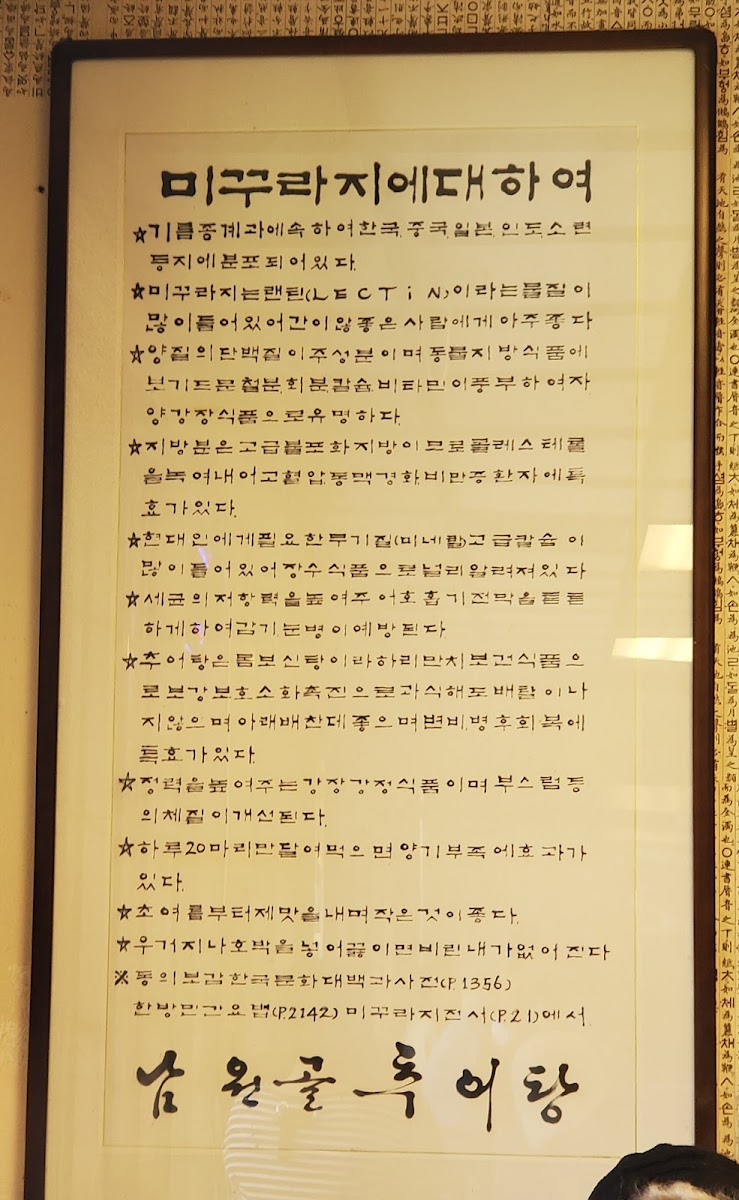 미꾸라지에대하여
☆기름종계과에속하여한국.중국.일본.인도.소련
등지에분포되어있다.
☆미꾸라지는랜틴(LECTiN)이라는물질이
많이들어있어간이않좋은사람에게아주좋다
☆양질의단백질이주성분이며동물지방식품에
보기드문철분.회분.칼슘.비타민이풍부하여자
양강장식품으로유명하다.
☆지방분은고급불포화지방이므로콜레스테롤
을녹여내어고혈압.동맥경화비만증환자에특
효가있다.
☆현대인에게필요한무기질(미네랄)고급칼슘이
많이들어있어장수식품으로널리알려져있다
☆세균의저항력을높여주어호흡기전막을튼튼
하게하여감기눈병이예방된다
☆추어탕은톰보신탕이라하리만치보건식품으
로보강보호소화촉진으로과식해도배탈이나
지않으며아래배찬데좋으며변비.병후회복에
특효가있다.
☆정력을높여주는강장강정식품이며부스럼등
의체질이개선된다.
☆하루20마리만달여먹으면양기부족에효과가
있다.
☆초여름부터제맛을내며작은것이좋다.
☆우거지나호박을넣어끓이면비린내가없어진다
※동의보감한국문화대백과사전(P.1356)
한방민간요법(P.2142)미꾸라지전서(P.21)에서
남원골추어탕